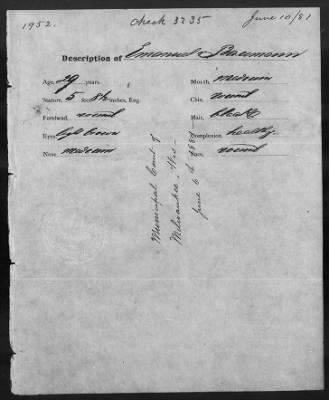 1952. Check 3235 June 10/81
Description of Emanuel
Age, 29 years. Mouth, medium
Stature, 5 feet 8½ inches, Eng. Chin, round
Forehead, round Hair, black
Eyes, light brown Complexion, healthy
Nose, medium Face, round
Municipal Court of
Milwaukee, Wis.
June 6th 1881